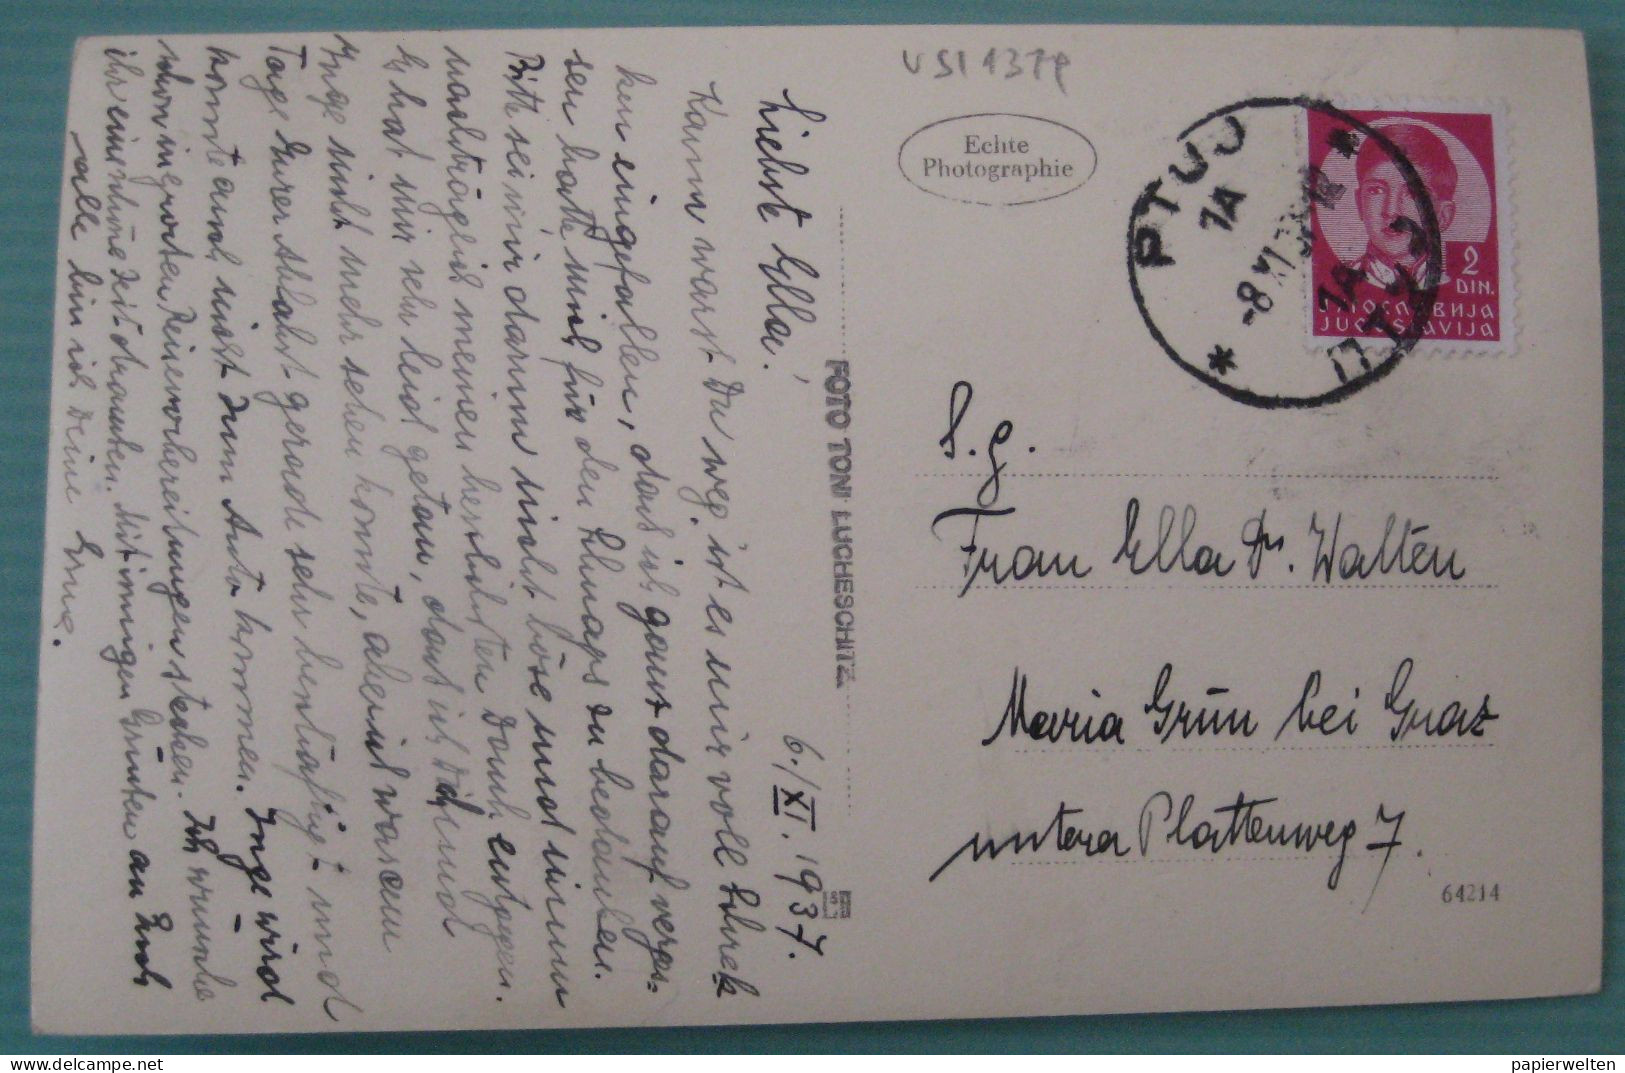 VSI 1374
Echte
Photographie
PTUJ
1A
-8 XI 37 12
1A
ПТУЈ
2
DIN.
ЈУГОСЛАВИЈА
JUGOSLAVIJA
Liebste Ella!
6./XI. 1937.
Kaum warst Du weg, ist es mir voll Schrek
ken eingefallen, dass ich ganz darauf verges-
sen hatte mich für den Schnaps zu bedanken.
Bitte sei mir darum nicht böse und nimm
nachträglich meinen herzlichsten Dank entgegen.
Es hat mir sehr leid getan, dass ich Dich und
Inge nicht mehr sehen konnte, allein wir waren
Tage Eurer Abfahrt gerade sehr beschäftigt und
konnte auch nicht zum Auto kommen. Inge wird
schon in grossen Reisevorbereitungen stecken. Ich wünsche
ihr eine schöne Zeit draussen. Mit innigen Grüssen an Euch
alle bin ich Deine Erne.
FOTO TONI LUCHESCHITZ
S. g.
Frau Ella Dr. Walten
Maria Grün bei Graz
untera Plattenweg 7.
64214
papierwelten